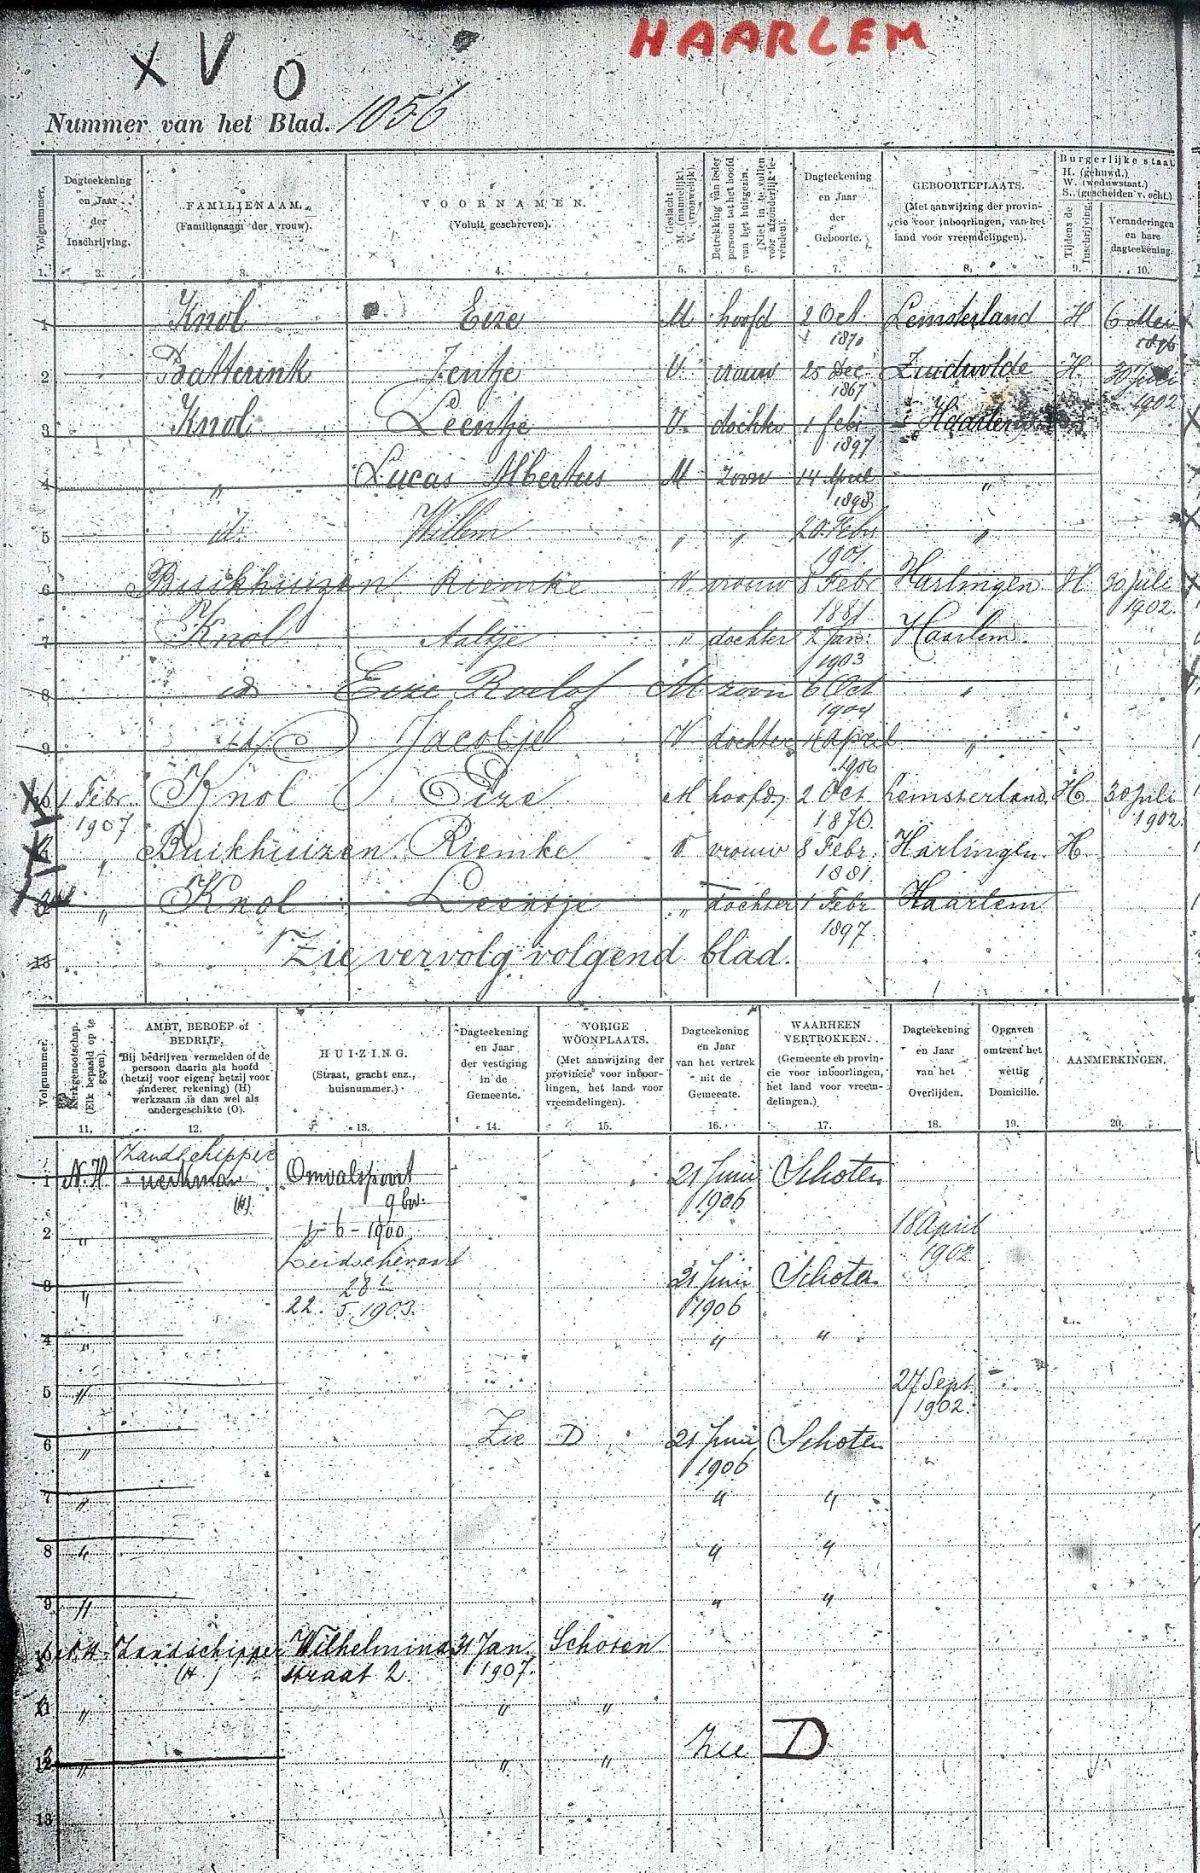 HAARLEM
X V O
Nummer van het Blad. 1056
Volgnummer. 1.
Dagteekening en Jaar der Inschrijving. 2.
FAMILIENAAM. (Familienaam der vrouw). 3.
VOORNAMEN. (Voluit geschreven). 4.
Geslacht M. (mannelijk). V. (vrouwelijk). 5.
Betrekking van ieder persoon tot het hoofd van het huisgezin. (Niet in te vullen voor afzonderlijk levenden). 6.
Dagteekening en Jaar der Geboorte. 7.
GEBOORTEPLAATS. (Met aanwijzing der provincie voor inboorlingen, van het land voor vreemdelingen). 8.
Burgerlijke staat. H. (gehuwd.) W. (weduwstaat.) S. (gescheiden v. echt.)
Tijdens de Inschrijving. 9.
Veranderingen en hare dagteekening. 10.
1 Knol Eize M hoofd 2 Oct. 1870 Lemsterland H 6 Mei 1896
2 Batterink Jentje V vrouw 25 Dec 1867 Zuidwolde H. 30 Juli 1902
3 Knol Leentje V. dochter 1 febr 1897 Haarlem
4 " Lucas Albertus M zoon 14 April 1898 "
5 id. Willem " " 20 Febr 1901 "
6 Buikhuizen Riemke V. vrouw 8 Febr 1881 Harlingen H 30 Juli 1902
7 Knol Aaltje " dochter 2 Jan. 1903 Haarlem
8 id Eize Roelof M zoon 6 Oct 1904 "
9 id Jacobje V dochter 1 April 1906 "
1 Febr. 1907 Knol Eize M hoofd 2 Oct 1870. Lemsterland H. 30 Juli 1902.
" Buikhuizen Riemke V vrouw 8 Febr. 1881 Harlingen H
" Knol Leentje " dochter 1 Febr 1897. Haarlem
13 Zie vervolg volgend blad.
Volgnummer.
Kerkgenootschap. (Elk bepaald op te geven). 11.
AMBT, BEROEP of BEDRIJF. (Bij bedrijven vermelden of de persoon daarin als hoofd (hetzij voor eigen, hetzij voor anderer rekening) (H) werkzaam is dan wel als ondergeschikte (O). 12.
HUIZING. (Straat, gracht enz., huisnummer.) 13.
Dagteekening en Jaar der vestiging in de Gemeente. 14.
VORIGE WOONPLAATS. (Met aanwijzing der provincie voor inboorlingen, het land voor vreemdelingen). 15.
Dagteekening en Jaar van het vertrek uit de Gemeente. 16.
WAARHEEN VERTROKKEN. (Gemeente en provincie voor inboorlingen, het land voor vreemdelingen.) 17.
Dagteekening en Jaar van het Overlijden. 18.
Opgaven omtrent het wettig Domicilie. 19.
AANMERKINGEN. 20.
Zandschipper
1 N.H. werkman (H) Omvalspoort 21 Juni 1906 Schoten
2 " 1-6-1900 18 April 1902
3 " 28 21 Juni 1906 Schoten
22. 5. 1903.
4 " " "
5 " 27 Sept 1902.
6 " Zie D 21 Juni 1906 Schoten
7 " " "
8 " " "
9 " " "
N.H. Zandschipper (H) Wilhelmina straat 2. 31 Jan. 1907. Schoten
" " "
12 " " " Zie D
13